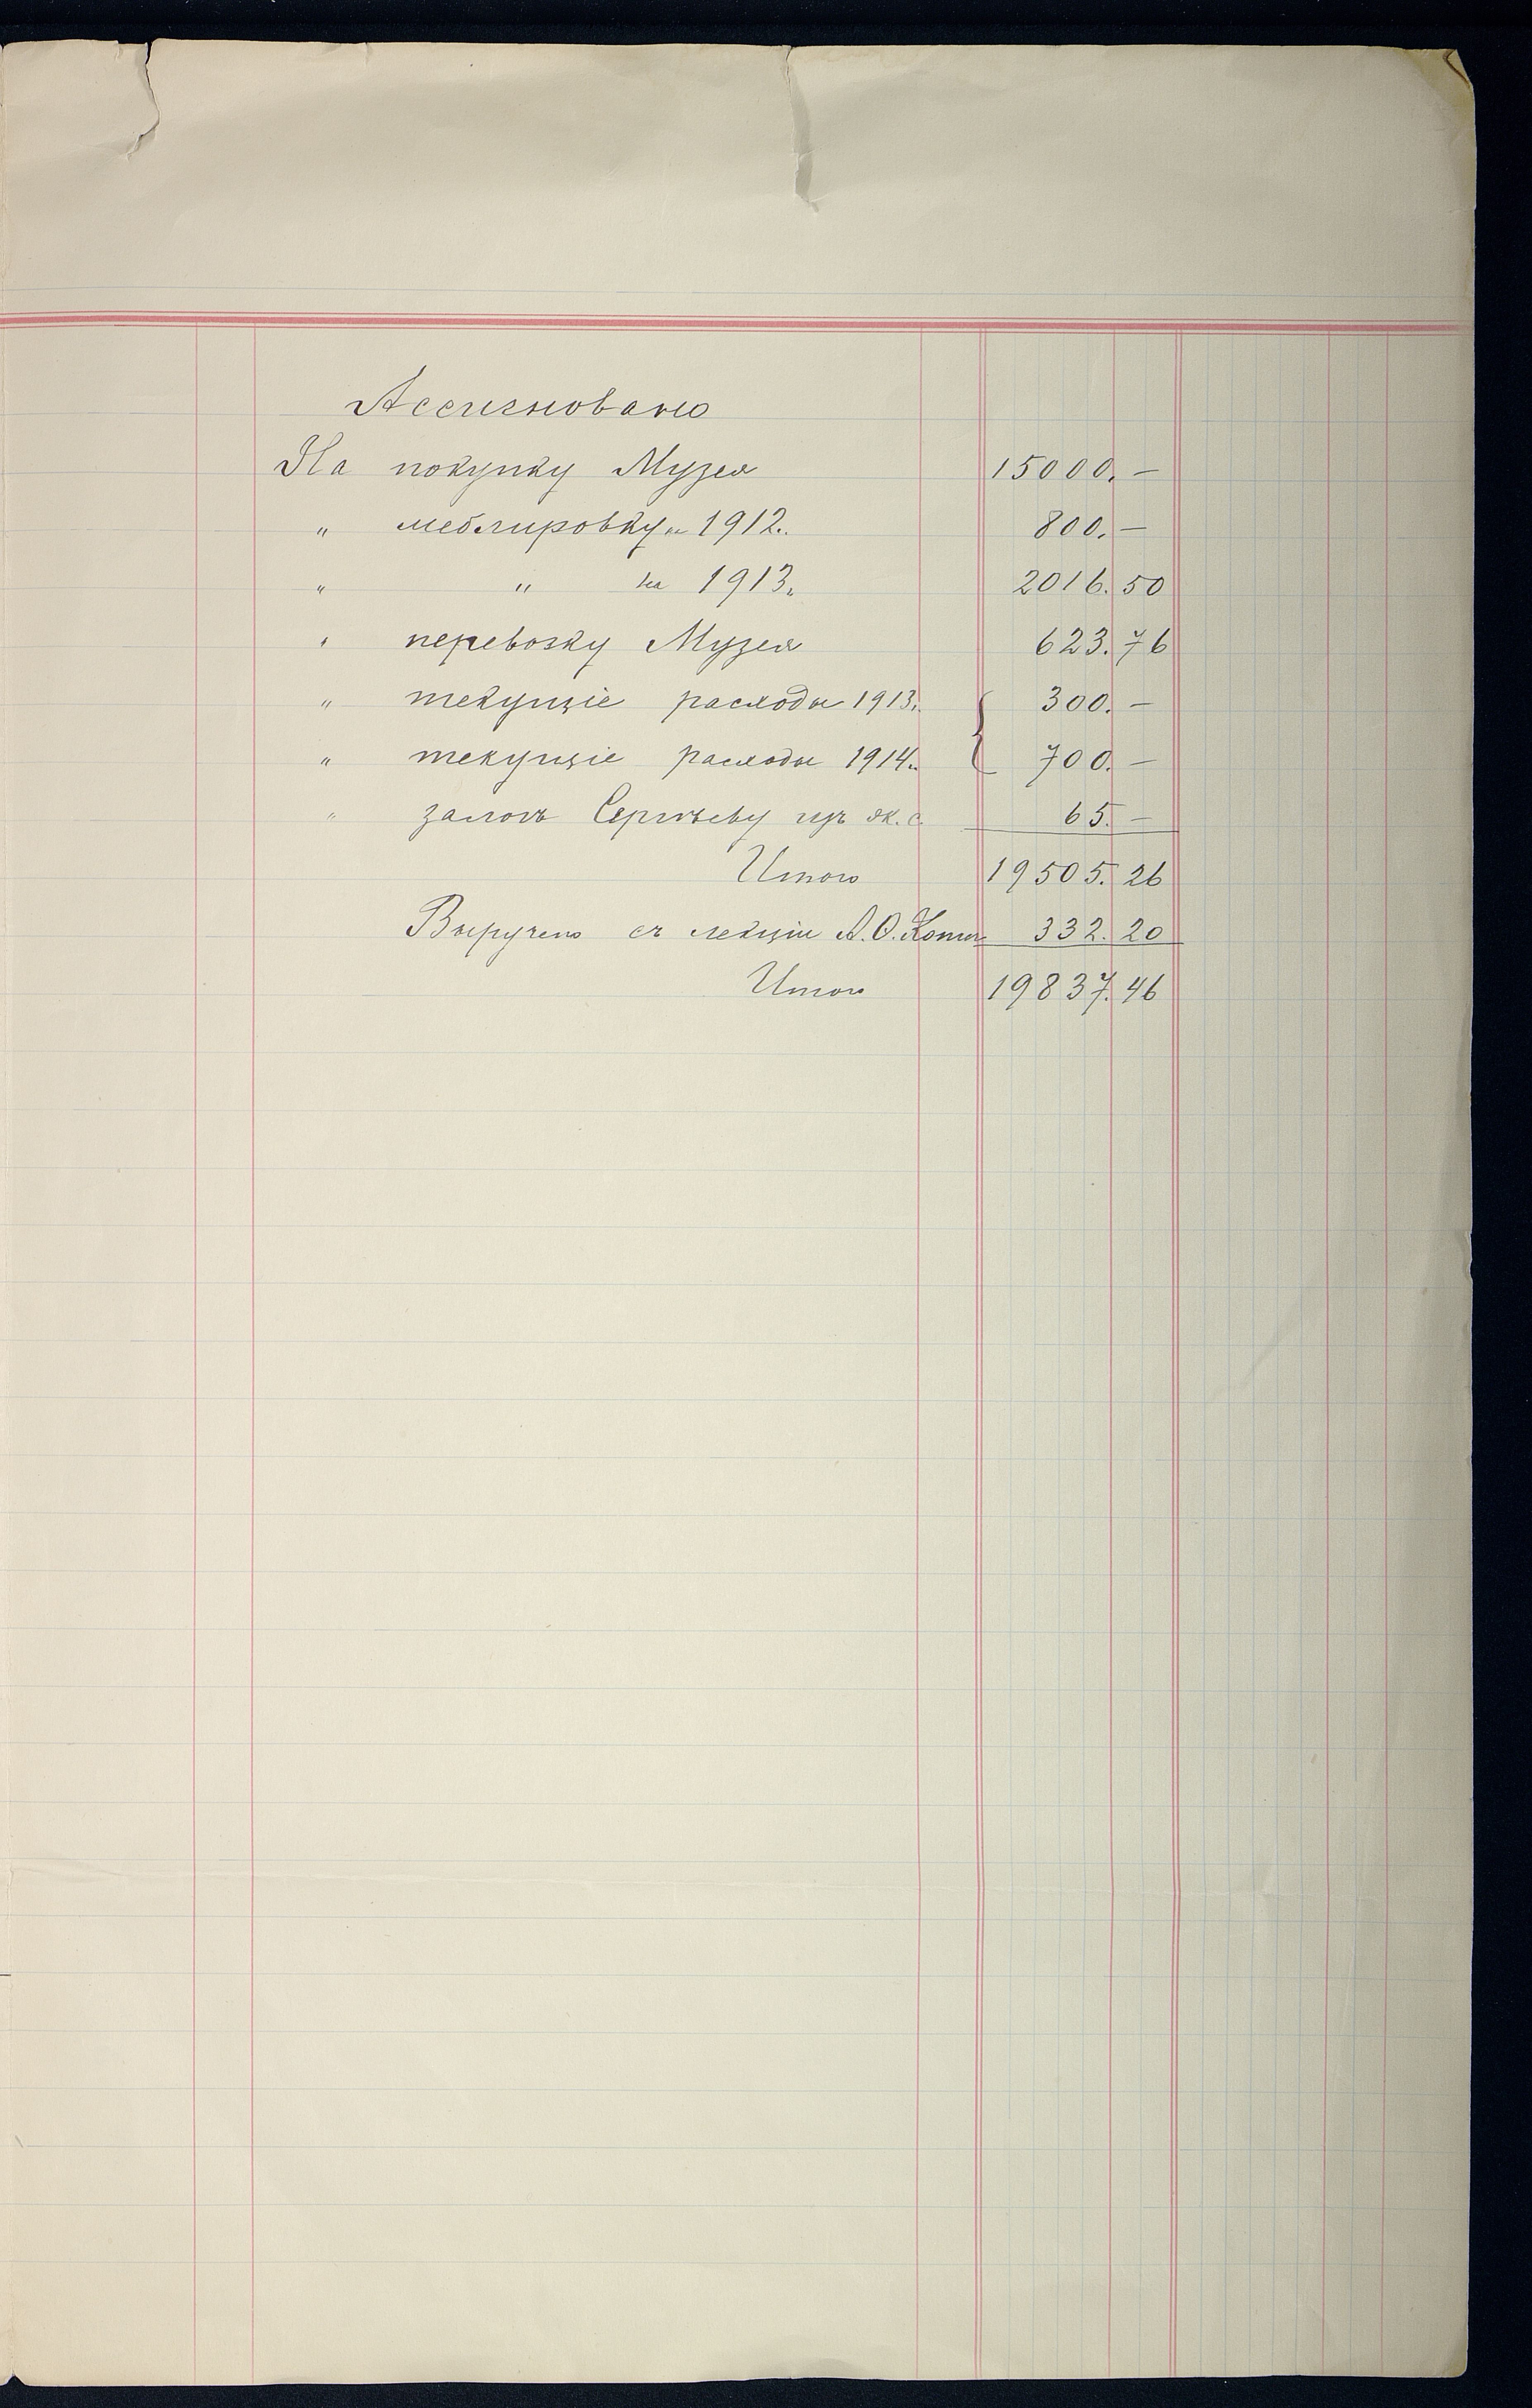 Ассигновано
На покупку Музея 15000. —
" меблировку на 1912. 800. —
" " на 1913. 2016. 50
" перевозку Музея 623. 76
" текущіе расходы 1913. 300. —
" текущіе расходы 1914. 700. —
" залогъ Сергѣеву изъ эк. с. 65. —
Итого 19505. 26
Выручено съ лекціи А.Ѳ. Кони 332. 20
Итого 19837. 46